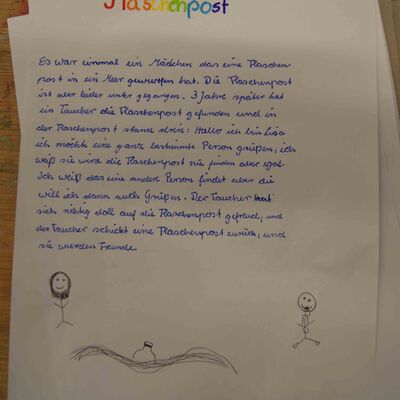 Flaschenpost
Es war einmal ein Mädchen das eine Flaschen
post in ein Meer geworfen hat. Die Flaschenpost
ist aber leider unter gegangen. 3 Jahre später hat
ein Taucher die Flaschenpost gefunden und in
der Flaschenpost stand drin: Hallo ich bin Lisa
ich möchte eine ganz bestimmte Person grüßen, ich
weiß sie wird die Flaschenpost nie finden aber egal.
Ich weiß das eine andere Person findet aber die
will ich dann auch Grüßen. Der Taucher hat
sich richtig doll auf die Flaschenpost gefreud, und
der Taucher schickt eine Flaschenpost zurück, und
sie werden Freunde.